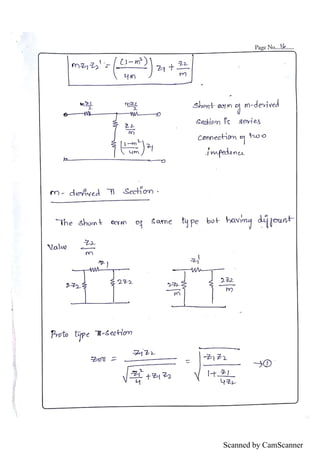 Page No. 36
mZ₁Z₂' = ((1-m²)/4m) Z₁ + Z₂/m
mZ₁/2 mZ₁/2
Z₂/m
((1-m²)/4m) Z₁
Shunt arm of m-derived
section is series
connection of two
impedance
m-derived π section.
The shunt arm of same type but having different
Value Z₂/m
Z₁ Z₁'
2Z₂ 2Z₂ 2Z₂/m 2Z₂/m
Proto type π-section
Z₀π = Z₁Z₂/√(Z₁²/4 + Z₁Z₂) = √(Z₁Z₂/(1 + Z₁/4Z₂)) →①
Scanned by CamScanner